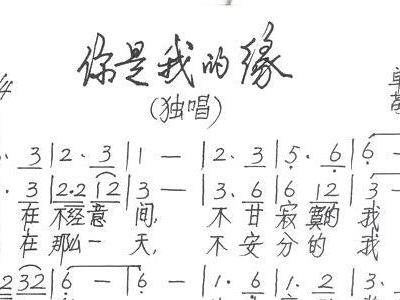 你是我的缘
(独唱)
3 | 2· 3 | 1 — | 2· 3 | 5· 6 | 6 —
3 | 2·2 12 | 3 — | 3· 6 | 6 12 | 3 —
在 不经意 间, 不 甘 寂寞的 我
在 那么一 天, 不 安 分 的 我
2 32 | 6 — | 6 — | 1· 6 | 1· 2 | 3·